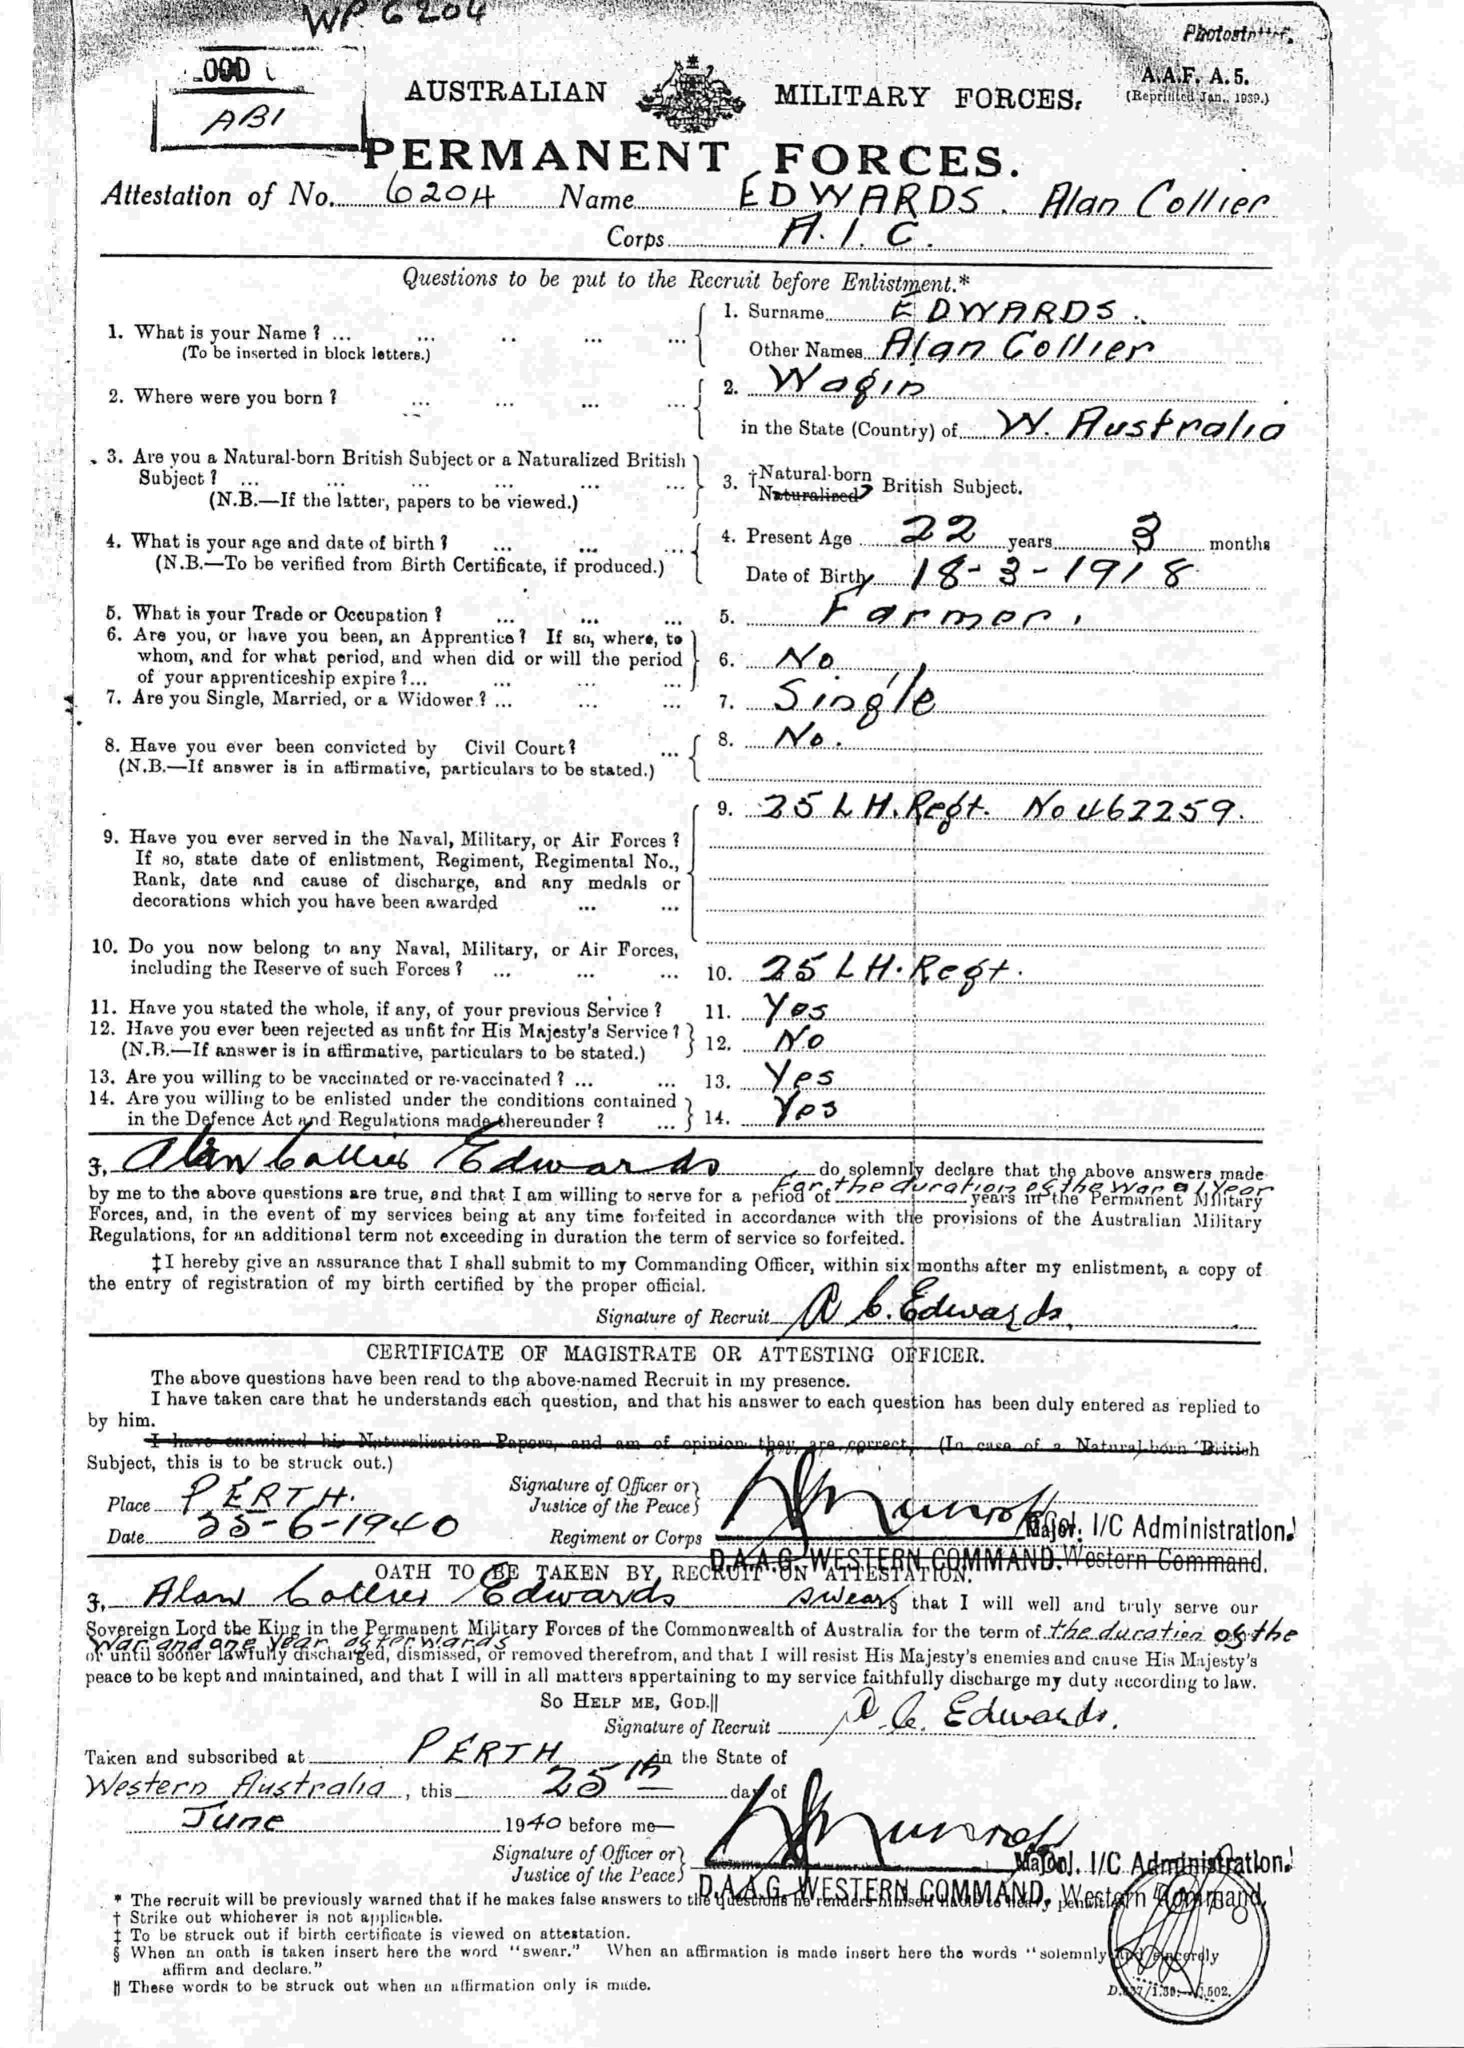 WP 6204
Photostat
ABI
A.A.F. A.5.
(Reprinted Jan., 1939.)
AUSTRALIAN MILITARY FORCES.
PERMANENT FORCES.
Attestation of No. 6204 Name EDWARDS. Alan Collier
Corps A.I.C.
Questions to be put to the Recruit before Enlistment.*
1. What is your Name? ... ... .. ... ...
(To be inserted in block letters.)
1. Surname EDWARDS.
Other Names Alan Collier
2. Where were you born? ... ... ... ...
2. Wagin
in the State (Country) of W. Australia
3. Are you a Natural-born British Subject or a Naturalized British
Subject? ... ... ... ... ... ...
(N.B.—If the latter, papers to be viewed.)
3. †Natural-born
Naturalized British Subject.
4. What is your age and date of birth? ... ... ...
(N.B.—To be verified from Birth Certificate, if produced.)
4. Present Age 22 years 3 months
Date of Birth 18-3-1918
5. What is your Trade or Occupation? ... ... ...
5. Farmer.
6. Are you, or have you been, an Apprentice? If so, where, to
whom, and for what period, and when did or will the period
of your apprenticeship expire?... ... ... ...
6. No
7. Are you Single, Married, or a Widower? ... ... ...
7. Single
8. Have you ever been convicted by Civil Court? ...
(N.B.—If answer is in affirmative, particulars to be stated.)
8. No.
9. Have you ever served in the Naval, Military, or Air Forces?
If so, state date of enlistment, Regiment, Regimental No.,
Rank, date and cause of discharge, and any medals or
decorations which you have been awarded ... ...
9. 25 L H. Regt. No 462259.
10. Do you now belong to any Naval, Military, or Air Forces,
including the Reserve of such Forces? ... ... ...
10. 25 L H. Regt.
11. Have you stated the whole, if any, of your previous Service?
11. Yes
12. Have you ever been rejected as unfit for His Majesty's Service?
(N.B.—If answer is in affirmative, particulars to be stated.)
12. No
13. Are you willing to be vaccinated or re-vaccinated? ... ...
13. Yes
14. Are you willing to be enlisted under the conditions contained
in the Defence Act and Regulations made thereunder? ...
14. Yes
I, Alan Collier Edwards do solemnly declare that the above answers made
For the duration of the War & 1 Year
by me to the above questions are true, and that I am willing to serve for a period of years in the Permanent Military
Forces, and, in the event of my services being at any time forfeited in accordance with the provisions of the Australian Military
Regulations, for an additional term not exceeding in duration the term of service so forfeited.
‡I hereby give an assurance that I shall submit to my Commanding Officer, within six months after my enlistment, a copy of
the entry of registration of my birth certified by the proper official.
Signature of Recruit A C. Edwards.
CERTIFICATE OF MAGISTRATE OR ATTESTING OFFICER.
The above questions have been read to the above-named Recruit in my presence.
I have taken care that he understands each question, and that his answer to each question has been duly entered as replied to
by him.
I have examined his Naturalization Papers, and am of opinion they are correct. (In case of a Natural-born British
Subject, this is to be struck out.)
Place PERTH.
Date 25-6-1940
Signature of Officer or
Justice of the Peace
Regiment or Corps
Major. I/C Administration.
D.A.A.G. WESTERN COMMAND. Western Command.
OATH TO BE TAKEN BY RECRUIT ON ATTESTATION.
I, Alan Collier Edwards swear§ that I will well and truly serve our
Sovereign Lord the King in the Permanent Military Forces of the Commonwealth of Australia for the term of the duration of the
War and one year afterwards
or until sooner lawfully discharged, dismissed, or removed therefrom, and that I will resist His Majesty's enemies and cause His Majesty's
peace to be kept and maintained, and that I will in all matters appertaining to my service faithfully discharge my duty according to law.
SO HELP ME, GOD.||
Signature of Recruit A. C. Edwards.
Taken and subscribed at PERTH in the State of
Western Australia, this 25th day of
June 1940 before me—
Signature of Officer or
Justice of the Peace
I/C Administration.
D.A.A.G. WESTERN COMMAND. Western Command.
* The recruit will be previously warned that if he makes false answers to the questions he renders himself liable to heavy penalties.
† Strike out whichever is not applicable.
‡ To be struck out if birth certificate is viewed on attestation.
§ When an oath is taken insert here the word "swear." When an affirmation is made insert here the words "solemnly and sincerely
affirm and declare."
|| These words to be struck out when an affirmation only is made.